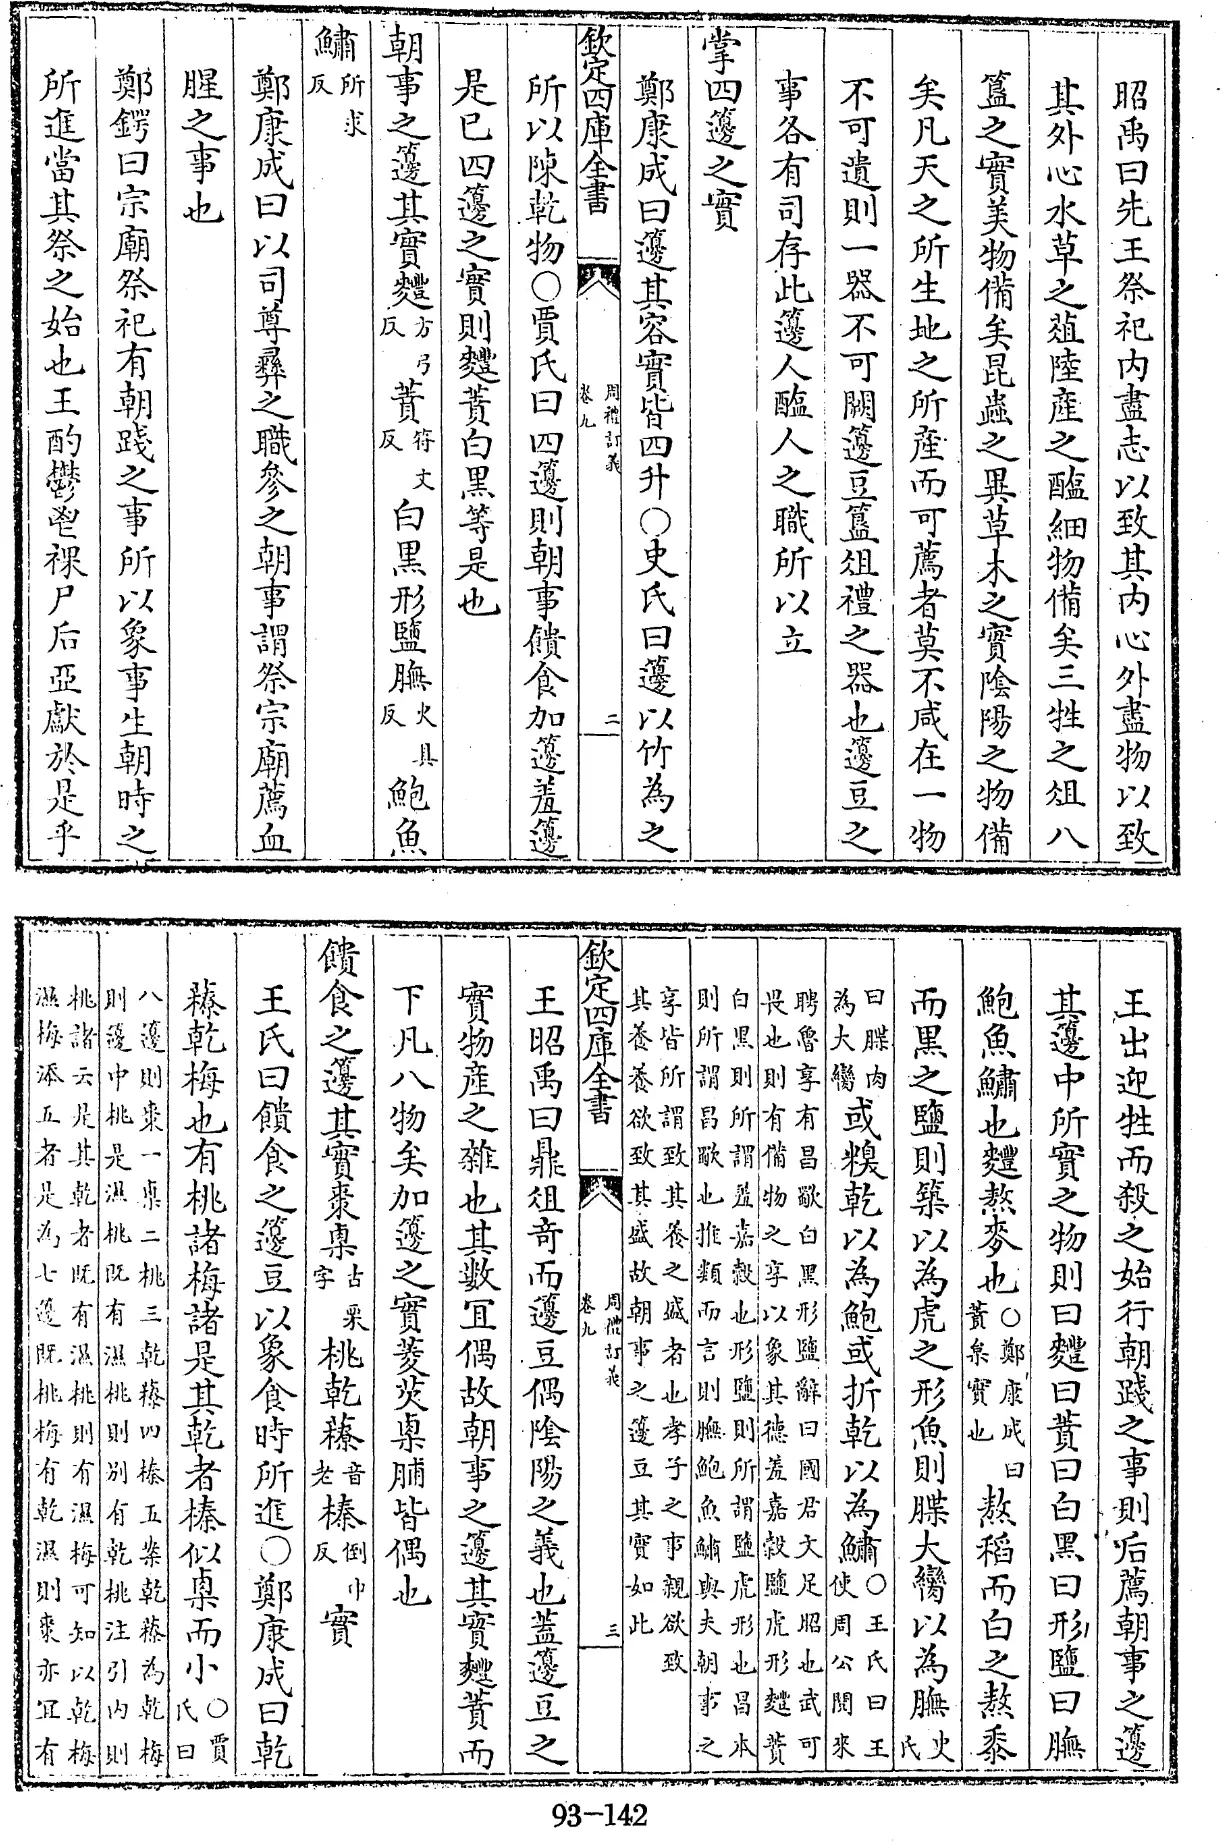 昭禹曰先王祭祀内盡志以致其内心外盡物以致
其外心水草之葅陸產之醢細物備矣三牲之俎八
簋之實美物備矣昆蟲之異草木之實陰陽之物備
矣凡天之所生地之所產而可薦者莫不咸在一物
不可遺則一器不可闕籩豆簋俎禮之器也籩豆之
事各有司存此籩人醢人之職所以立
掌四籩之實
鄭康成曰籩其容實皆四升○史氏曰籩以竹為之
欽定四庫全書 周禮訂義 卷九 二
所以陳乾物○賈氏曰四籩則朝事饋食加籩羞籩
是已四籩之實則麷蕡白黒等是也
朝事之籩其實麷方弓反蕡符文反白黒形鹽膴火具反鮑魚
鱐所求反
鄭康成曰以司尊彝之職參之朝事謂祭宗廟薦血
腥之事也
鄭鍔曰宗廟祭祀有朝踐之事所以象事生朝時之
所進當其祭之始也王酌鬱鬯祼尸后亞獻於是乎
王出迎牲而殺之始行朝踐之事則后薦朝事之籩
其籩中所實之物則曰麷曰蕡曰白黒曰形鹽曰膴
鮑魚鱐也麷熬麥也○鄭康成曰蕡枲實也熬稻而白之熬黍
而黒之鹽則築以為虎之形魚則䐑大臠以為膴史氏
曰䐑肉為大臠或糗乾以為鮑或折乾以為鱐○王氏曰王使周公閲來
聘魯享有昌歜白黒形鹽辭曰國君文足昭也武可
畏也則有備物之享以象其德羞嘉穀鹽虎形麷蕡
白黒則所謂羞嘉穀也形鹽則所謂鹽虎形也昌本
則所謂昌歜也推類而言則膴鮑魚鱐與夫朝事之
享皆所謂致其養之盛者也孝子之事親欲致
其養養欲致其盛故朝事之籩豆其實如此
欽定四庫全書 周禮訂義 卷九 三
王昭禹曰鼎俎竒而籩豆偶陰陽之義也蓋籩豆之
實物產之雜也其數冝偶故朝事之籩其實麷蕡而
下凡八物矣加籩之實菱芡㮚脯皆偶也
饋食之籩其實棗㮚古栗字桃乾䕩音老榛側巾反實
王氏曰饋食之籩豆以象食時所進○鄭康成曰乾
䕩乾梅也有桃諸梅諸是其乾者榛似㮚而小○賈氏曰
八籩則棗一㮚二桃三乾䕩四榛五案乾䕩為乾梅
則籩中桃是濕桃既有濕桃則别有乾桃注引内則
桃諸云是其乾者既有濕桃則有濕梅可知以乾梅
濕梅添五者是為七籩既桃梅有乾濕則棗亦冝有
93-142